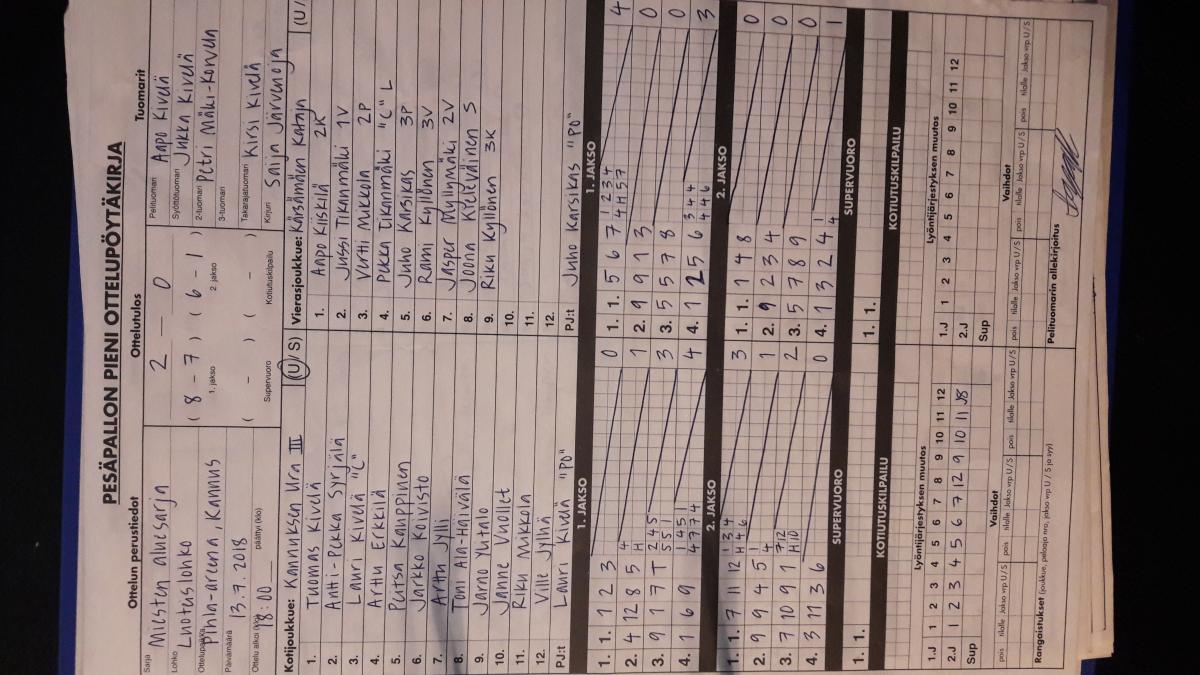 PESÄPALLON PIENI OTTELUPÖYTÄKIRJA
Ottelun perustiedot
Sarja Miesten aluesarja
Lohko Luotuslohko
Ottelupaikka Pihla-areena, Kannus
Päivämäärä 13.7.2018
Ottelu alkoi (klo) 18:00 päättyi (klo)
Ottelutulos
2 – 0
( 8 - 7 ) ( 6 - 1 )
1. jakso 2. jakso
( - ) ( - )
Supervuoro Kotiutuskilpailu
Tuomarit
Pelituomari Aapo Kivelä
Syöttötuomari Jukka Kivelä
2-tuomari Petri Mäki-Korvun
3-tuomari
Takarajatuomari Kirsi Kivelä
Kirjuri Saija Järvenoja
Kotijoukkue: Kannuksen Ura III (U/ S)
1. Tuomas Kivelä
2. Antti-Pekka Syrjälä
3. Lauri Kivelä "C"
4. Arttu Erkkilä
5. Petsa Kauppinen
6. Jarkko Koivisto
7. Arttu Jylli
8. Toni Ala-Haivälä
9. Jarno Yutalo
10. Janne Vuollet
11. Riku Mikkola
12. Ville Jylhä
PJ:t Lauri Kivelä "PO"
Vierasjoukkue: Kärsämäen Kataja (U /
1. Aapo Kiiskilä 2K
2. Jussi Tikanmäki 1V
3. Vertti Mikkola 2P
4. Pekka Tikanmäki "C" L
5. Juho Karsikas 3P
6. Rami Kyllönen 3V
7. Jasper Myllymäki 2V
8. Joona Kteleväinen S
9. Riku Kyllönen 3K
10.
11.
12.
PJ:t Juho Karsikas "PO"
1. JAKSO
1. 1. 1 2 3 0
2. 4 12 8 5 4 H 1
3. 9 1 7 T 2 4 5 5 5 1 3
4. 1 6 9 1 4 5 1 4 7 7 4 4
2. JAKSO
1. 1. 7 11 12 1 3 4 H 4 6 3
2. 9 9 4 5 1 4 1
3. 7 10 9 1 7 12 H 10 2
4. 3 11 3 6 0
SUPERVUORO
1. 1.
KOTIUTUSKILPAILU
1. JAKSO
1. 1. 5 6 7 1 2 3 4 4 H 5 7 4
2. 9 9 1 3 0
3. 5 5 7 8 0
4. 1 2 5 6 3 4 4 4 4 6 3
2. JAKSO
1. 1. 1 4 8 0
2. 9 2 3 4 0
3. 5 7 8 9 0
4. 1 3 2 4 1 4 1
SUPERVUORO
1. 1.
KOTIUTUSKILPAILU
Lyöntijärjestyksen muutos
1.J 1 2 3 4 5 6 7 8 9 10 11 12
2.J 1 2 3 4 5 6 7 12 9 10 11 J8
Sup
Vaihdot
pois tilalle Jakso vrp U/S pois tilalle Jakso vrp U/S pois tilalle Jakso vrp U/S
Lyöntijärjestyksen muutos
1.J 1 2 3 4 5 6 7 8 9 10 11 12
2.J
Sup
Vaihdot
pois tilalle Jakso vrp U/S pois tilalle Jakso vrp U/S pois tilalle Jakso vrp U/S
Rangaistukset (joukkue, pelaaja nro, jakso vrp U / S ja syy)
Pelituomarin allekirjoitus